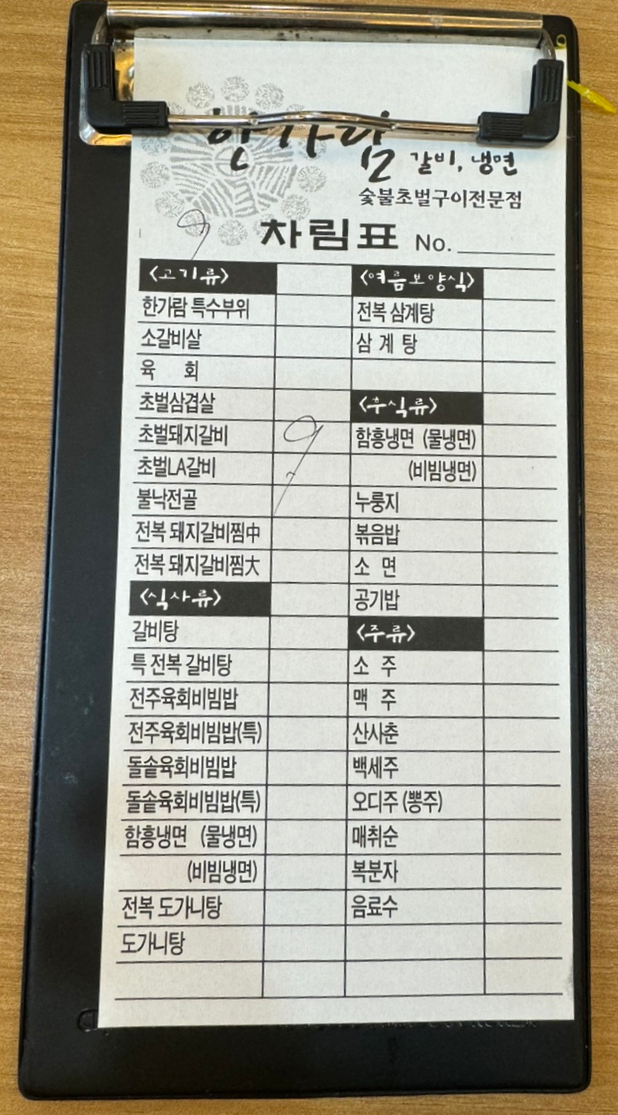 한가람 갈비, 냉면
숯불초벌구이전문점
9
차림표 No.
<고기류>
한가람 특수부위
소갈비살
육 회
초벌삼겹살
초벌돼지갈비 9
초벌LA갈비
불낙전골
전복 돼지갈비찜中
전복 돼지갈비찜大
<식사류>
갈비탕
특 전복 갈비탕
전주육회비빔밥
전주육회비빔밥(특)
돌솥육회비빔밥
돌솥육회비빔밥(특)
함흥냉면 (물냉면)
(비빔냉면)
전복 도가니탕
도가니탕
<여름보양식>
전복 삼계탕
삼 계 탕
<후식류>
함흥냉면 (물냉면)
(비빔냉면)
누룽지
볶음밥
소 면
공기밥
<주류>
소 주
맥 주
산사춘
백세주
오디주 (뽕주)
매취순
복분자
음료수